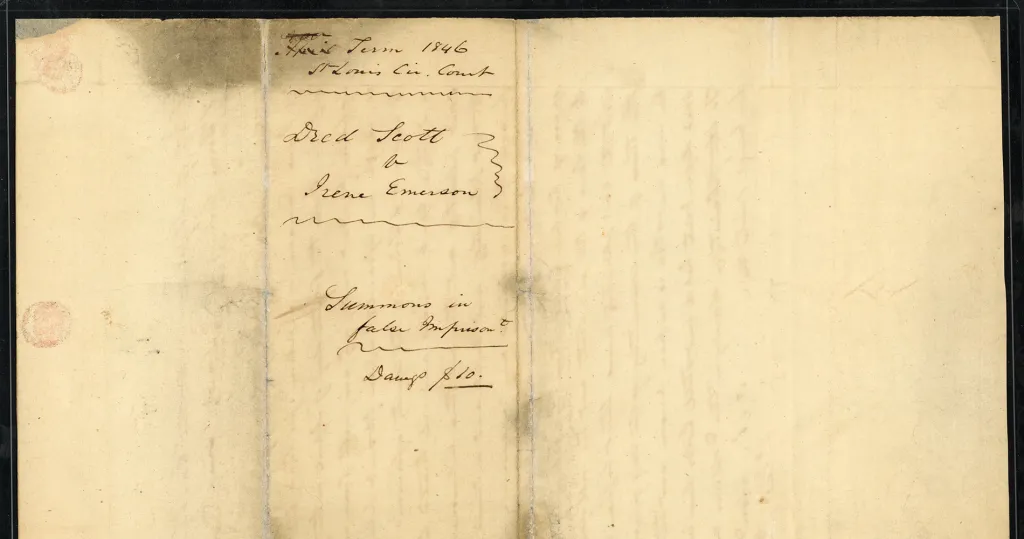 April Term 1846
St Louis Cir. Court
Dred Scott
v
Irene Emerson
Summons in
false Imprisont.
Damgs $10.